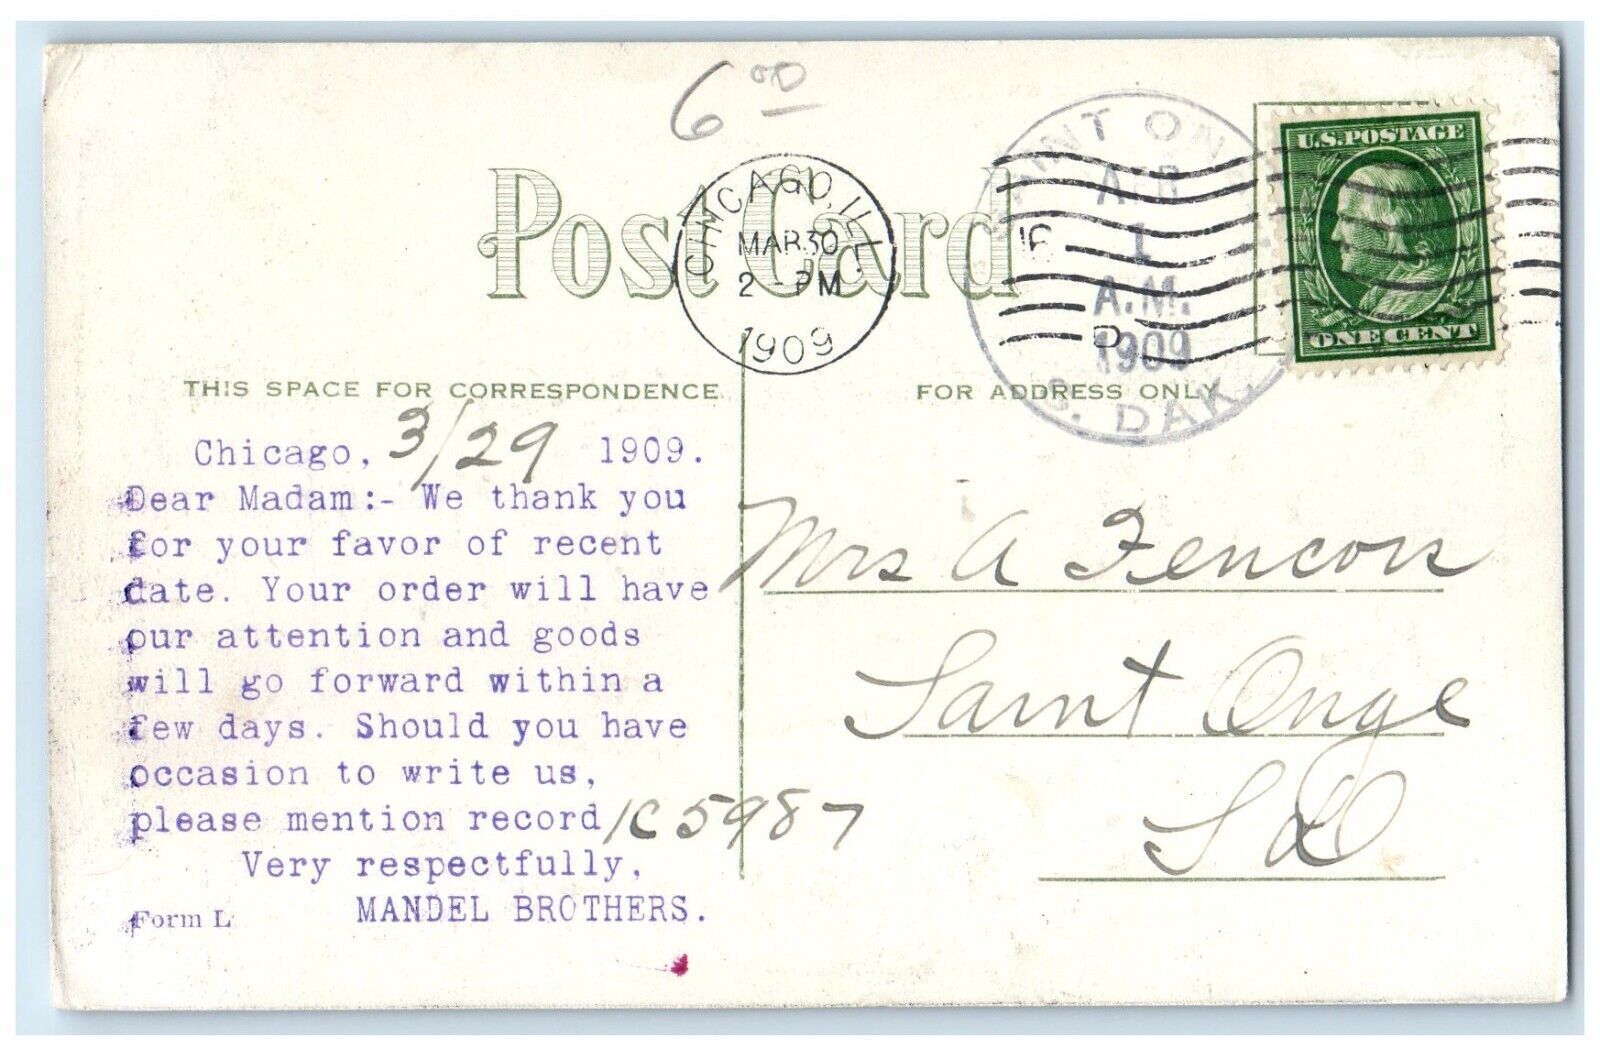 6 00
Post Card
CHICAGO, ILL.
MAR 30
2 - PM
1909
SAINT ON
APR
1
A.M.
1909
S. DAK.
D
U.S. POSTAGE
ONE CENT
THIS SPACE FOR CORRESPONDENCE
Chicago, 3/29 1909.
Dear Madam:- We thank you
for your favor of recent
date. Your order will have
our attention and goods
will go forward within a
few days. Should you have
occasion to write us,
please mention record K5987
Very respectfully,
Form L MANDEL BROTHERS.
FOR ADDRESS ONLY
Mrs A
Saint Onge
S D